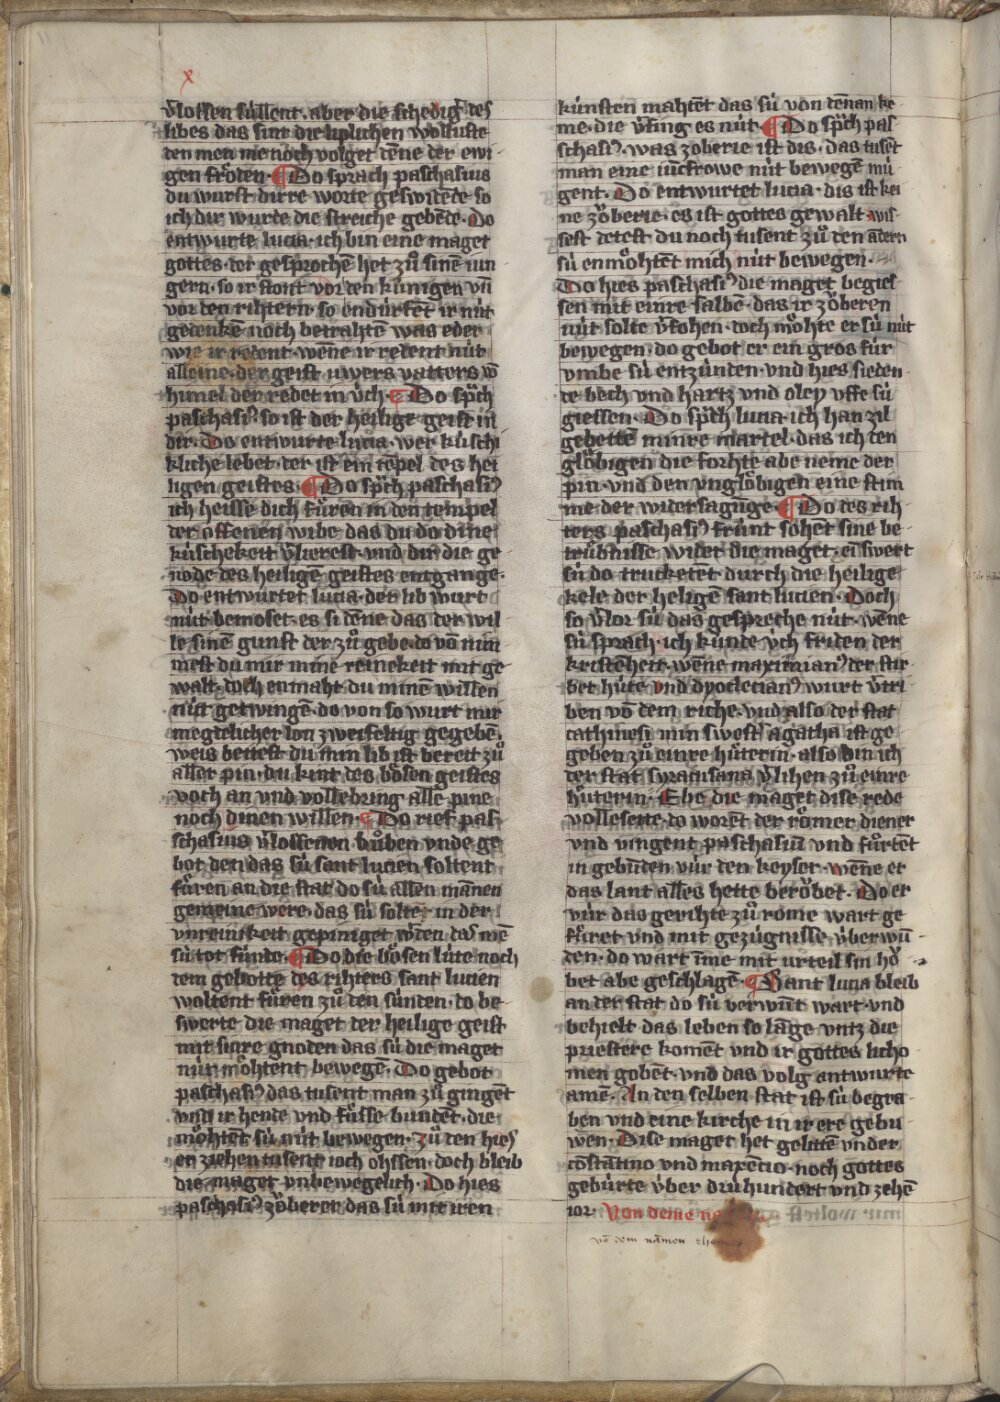 x
v̓lossen süllent· aber die schediger des
libes das sint die liplichen wolluste
den men me noch volget denne der ewi
gen fröden· Do sprach paschasius
du wurst dirre worte geswigende so
ich dir wurde die streiche gebende· Do
entwurte lucia· ich bin eine maget
gottes· der gesprochē het zů sinē iun
gern· so ir stont vor den künigen vn̄
vor den rihtern so endürfēt ir nüt
gedenkē noch betrahtē was oder
wie ir redent· wēne ir redent nüt
alleine· der geist uwers vatters vō
himel der redet in v̈ch· Do sp̄ch
paschasi⁹ so ist der heilige geist in
dir· Do entwurte lucia· wer küschi
kliche lebet· der ist ein tēpel des hei
ligen geistes· Do sp̄ch paschasi⁹
ich heisse dich fürēn in den tempel
der offenen wibe das du do dine
küschekeit v̓lierest· vnd dir die ge
node des heiligē geistes entgange·
Do entwurtet lucia· der lib wurt
nüt bemoset· es si dēne das der wil
le sinē gunst der zů gebe· do vō nim
mest du mir mine reinekeit mit ge
walt· doch enmaht du minē willen
nüt getwingē· do von so wurt mir
megdelicher lon zweifeltig gegebē·
weis bettest du min lib ist bereit zů
aller pin· du kint des bösen geistes
voch an vnd vollebring alle pine
noch dinen willen· Do rief pas
schasius v̓lossenen bůben vnde ge
bot den das sü sant lucien soltent
fürēn an die stat do sü allen mānen
gemeine were· das sü soltē in der
vnreinikeit gepiniget w̓den das mē
sü tot fünde· Do die bösen lüte noch
dem gebotte des rihters sant lucien
woltent füren zů den sünden· do be
swerte die maget der heilige geist
mit sinre gnoden das sü die maget
nüt möhtent bewegē· Do gebot
paschasi⁹ das tusent man zů gingēt
vnd ir hende vnd füsse bundēt· die
möhtēt sü nüt bewegen· zů den hies
er ziehen tusent ioch ohssen· doch bleib
die maget vnbewegelich· Do hies
paschasi⁹ zöberer das sü mit iren
künsten mahtēt das sü von dēnan ke
me· die v̓fing es nüt· Do sp̄ch pas
schasi⁹· was zöberie ist dis· das tuset
man eine iūcfrowe nüt bewegē mü
gent· Do entwurtet lucia· dis ist kei
ne zöberie· es ist gottes gewalt· wis
sest detest du noch tusent zů den ādern
sü enmöhtēt mich nüt bewegen·
Do hies paschasi⁹ die maget begies
sen mit einre salbē· das ir zöberen
nüt solte v̓fohen· doch möhte er sü nüt
bewegen· do gebot er ein gros für
vmbe sü entzünden· vnd hies sieden
de bech vnd hartz vnd oley vffe sü
giessen· Do sp̄ch lucia· ich han zil
gebettē minre martel· das ich den
glöbigen die forhte abe neme der
pin· vnd den vnglöbigen eine stim
me der widersagūge· Do des rih
ters paschasi⁹ frünt sohēt sine be
trübnisse wider die maget· ein swert
sü do truckētēt durch die heilige
kele der heligē sant lucien· Doch
so v̓lor sü das gespreche nüt· wēne
sü sprach· ich künde v̈ch friden der
kristēheit· wēne maximian⁹ der stir
bet hüte vnd dyocletian⁹ wurt v̓tri
ben vō dem riche· vnd also der stat
cathinesi min swest̓ agatha ist ge
geben zů einre hüterin· also bin ich
der stat syracusana v̓lihen zů einre
hüterin· Ehe die maget dise rede
volleseite· do worēt der römer diener
vnd vingent paschasiū vnd fürtēt
in gebūden vür den keyser· wēne er
das lant alles hette beröbet· Do er
vür das gerihte zů rome wart ge
füret vnd mit gezügnisse v̈berwū
den· do wart īme mit urteil sin hö
bet abe geschlagē· Sant lucia bleib
an der stat do sü verwūt wart· vnd
behielt das leben so lāge vntz die
priestere komēt vnd ir gottes licho
men gobēt· vnd das volg antwurte
amē· An den selben stat ist sü begra
ben vnd eine kirche in ir ere gebu
wen· Dise maget het gelittē vnder
cōstātino vnd maxēcio· noch gottes
gebürte v̈ber drühundert vnd zehē
ior· Von deme
vō dem nāmen